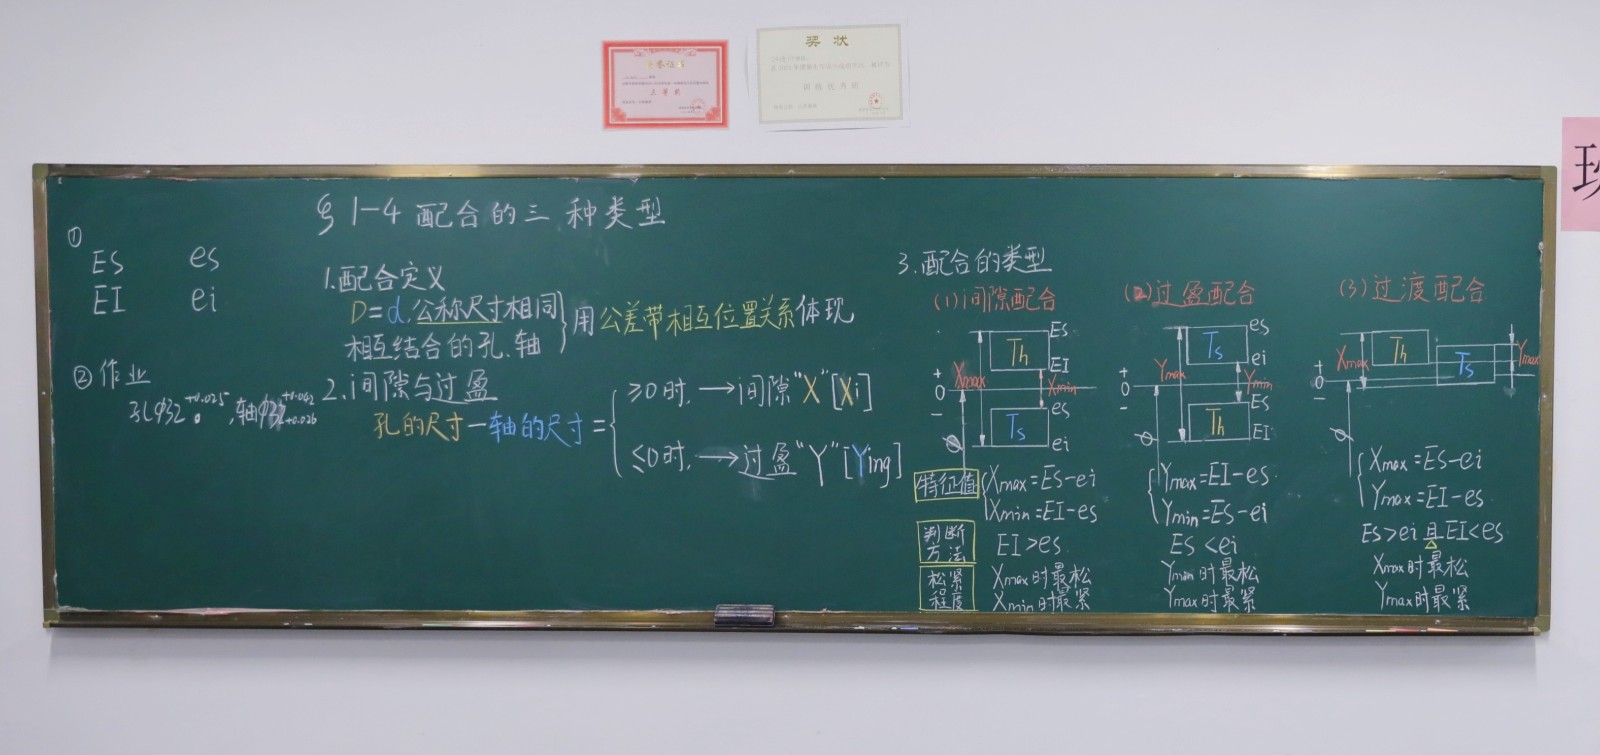 荣誉证书
三等奖
奖状
训练优秀班
玫
§1-4 配合的三种类型
①
ES es
EI ei
② 作业
孔φ32 +0.025 0, 轴φ32 +0.042 +0.026
1.配合定义
D=d,公称尺寸相同
相互结合的孔、轴
用公差带相互位置关系体现
2.间隙与过盈
孔的尺寸-轴的尺寸=
≥0时,→间隙"X"[Xi]
≤0时,→过盈"Y"[Ying]
3.配合的类型
(1)间隙配合
Th ES EI
Xmax Xmin
+ 0 -
Ts es ei
φ
特征值
Xmax=ES-ei
Xmin=EI-es
判断方法
EI>es
松紧程度
Xmax时最松
Xmin时最紧
(2)过盈配合
Ts es ei
Ymax Ymin
+ 0 -
Th ES EI
φ
Ymax=EI-es
Ymin=ES-ei
ES<ei
Ymin时最松
Ymax时最紧
(3)过渡配合
Xmax Th Ts Ymax
+ 0 -
φ
Xmax=ES-ei
Ymax=EI-es
Es>ei且EI<es
Xmax时最松
Ymax时最紧